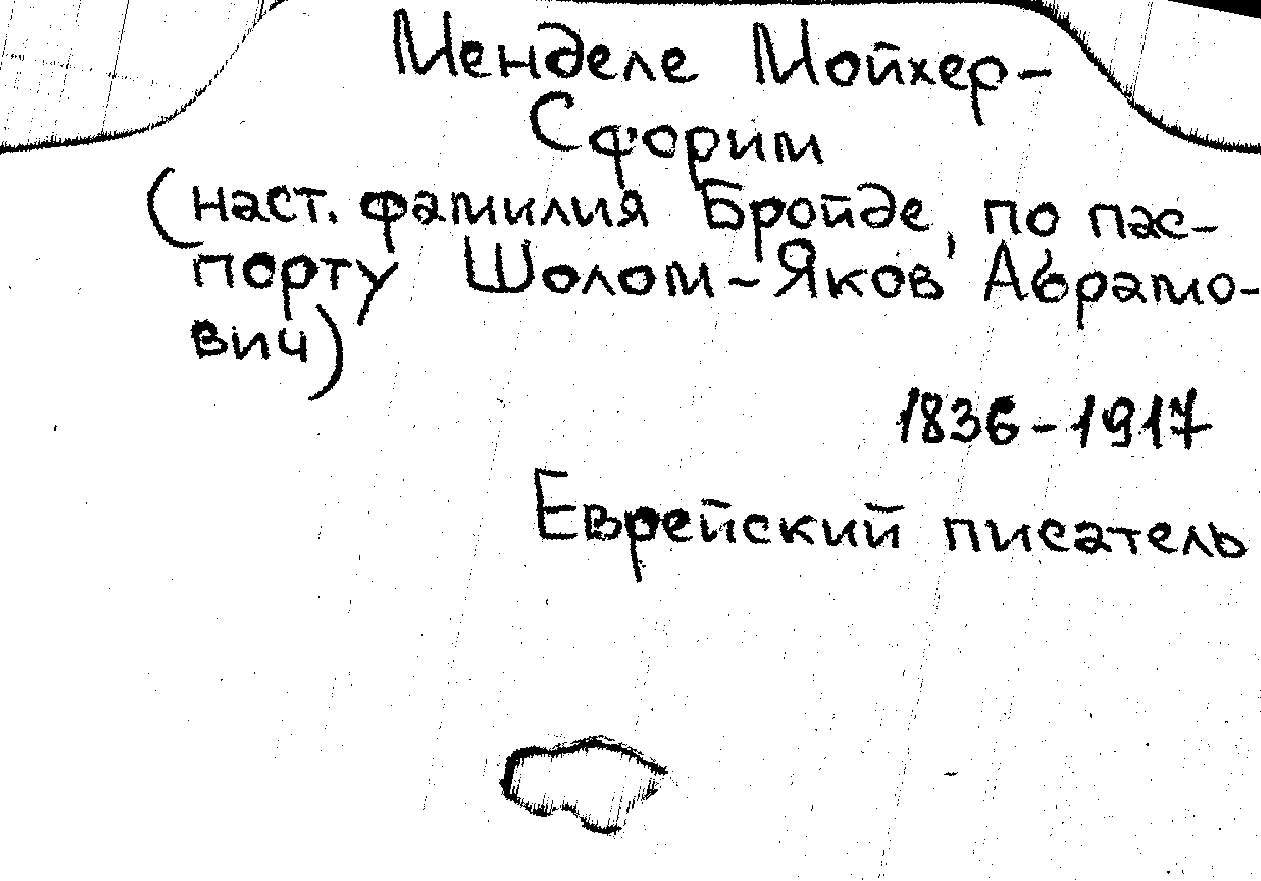 Менделе Мойхер-
Сфорим
(наст. фамилия Бройде, по пас-
порту Шолом-Яков Абрамо-
вич)
1836-1917
Еврейский писатель